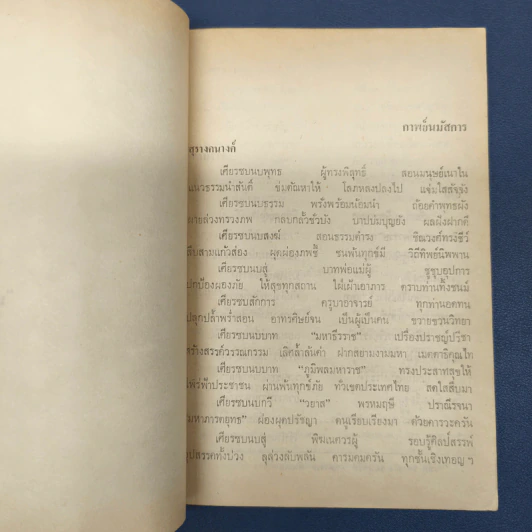 กาพย์นมัสการ
สุรางคนางค์
เศียรซบนบพุทธ ผู้ทรงพิสุทธิ์ สอนมนุษย์เนาใน
แนวธรรมนำสันติ์ ข่มตัณหาให้ โลภหลงปลงไป แจ่มใสสัจจัง
เศียรซบนบธรรม พรั่งพร้อมน้อมนำ ถ้อยคำพุทธผัง
ตายล่วงทรวงภพ กลบกลั้วชั่วบัง บาปบ่มบุญยัง ผลฝังฝากดี
เศียรซบนบสงฆ์ สอนธรรมดำรง ชิณวงศ์ทรงชีว์
สืบสามแก้วส่อง ผุดผ่องภพชี้ ชนพ้นทุกข์มี วิถีทิพย์นิพพาน
เศียรซบนบสู่ บาทพ่อแม่ผู้ ชูชุบอุปการ
ปกป้องผองภัย ให้สุขทุกสถาน ใฝ่เฝ้าอาหาร ตราบท่านทั้งชนม์
เศียรซบสักการ ครูบาอาจารย์ ทุกท่านอดทน
ปลุกปล้ำพร่ำสอน อาทรศิษย์จน เป็นผู้เป็นคน ขวายขวนวิทยา
เศียรซบนบบาท "มหาธีรราช" เปรื่องปราชญ์ปรีชา
สร้างสรรค์วรรณกรรม เลิศล้ำล้นค่า ฝากสยามงามมหา เมตตาธิคุณไท
เศียรซบนบบาท "ภูมิพลมหาราช" ทรงประสาทสุขให้
ไพร่ฟ้าประชาชน ผ่านพ้นทุกข์ภัย ทั่วเขตประเทศไทย สดใสสืบมา
เศียรซบนบกวี "วยาส" พรหมฤษี ปราณีรจนา
"มหาภารตยุทธ" ผ่องผุดปรัชญา ดนูเรียบเรียงมา ด้วยคารวะครัน
เศียรซบนบสู่ พิฆเนศวรผู้ รอบรู้ศิลป์สรรพ์
อุปสรรคทั้งปวง ลุล่วงฉับพลัน คารมคมครัน ทุกชั้นเชิงเทอญ ฯ